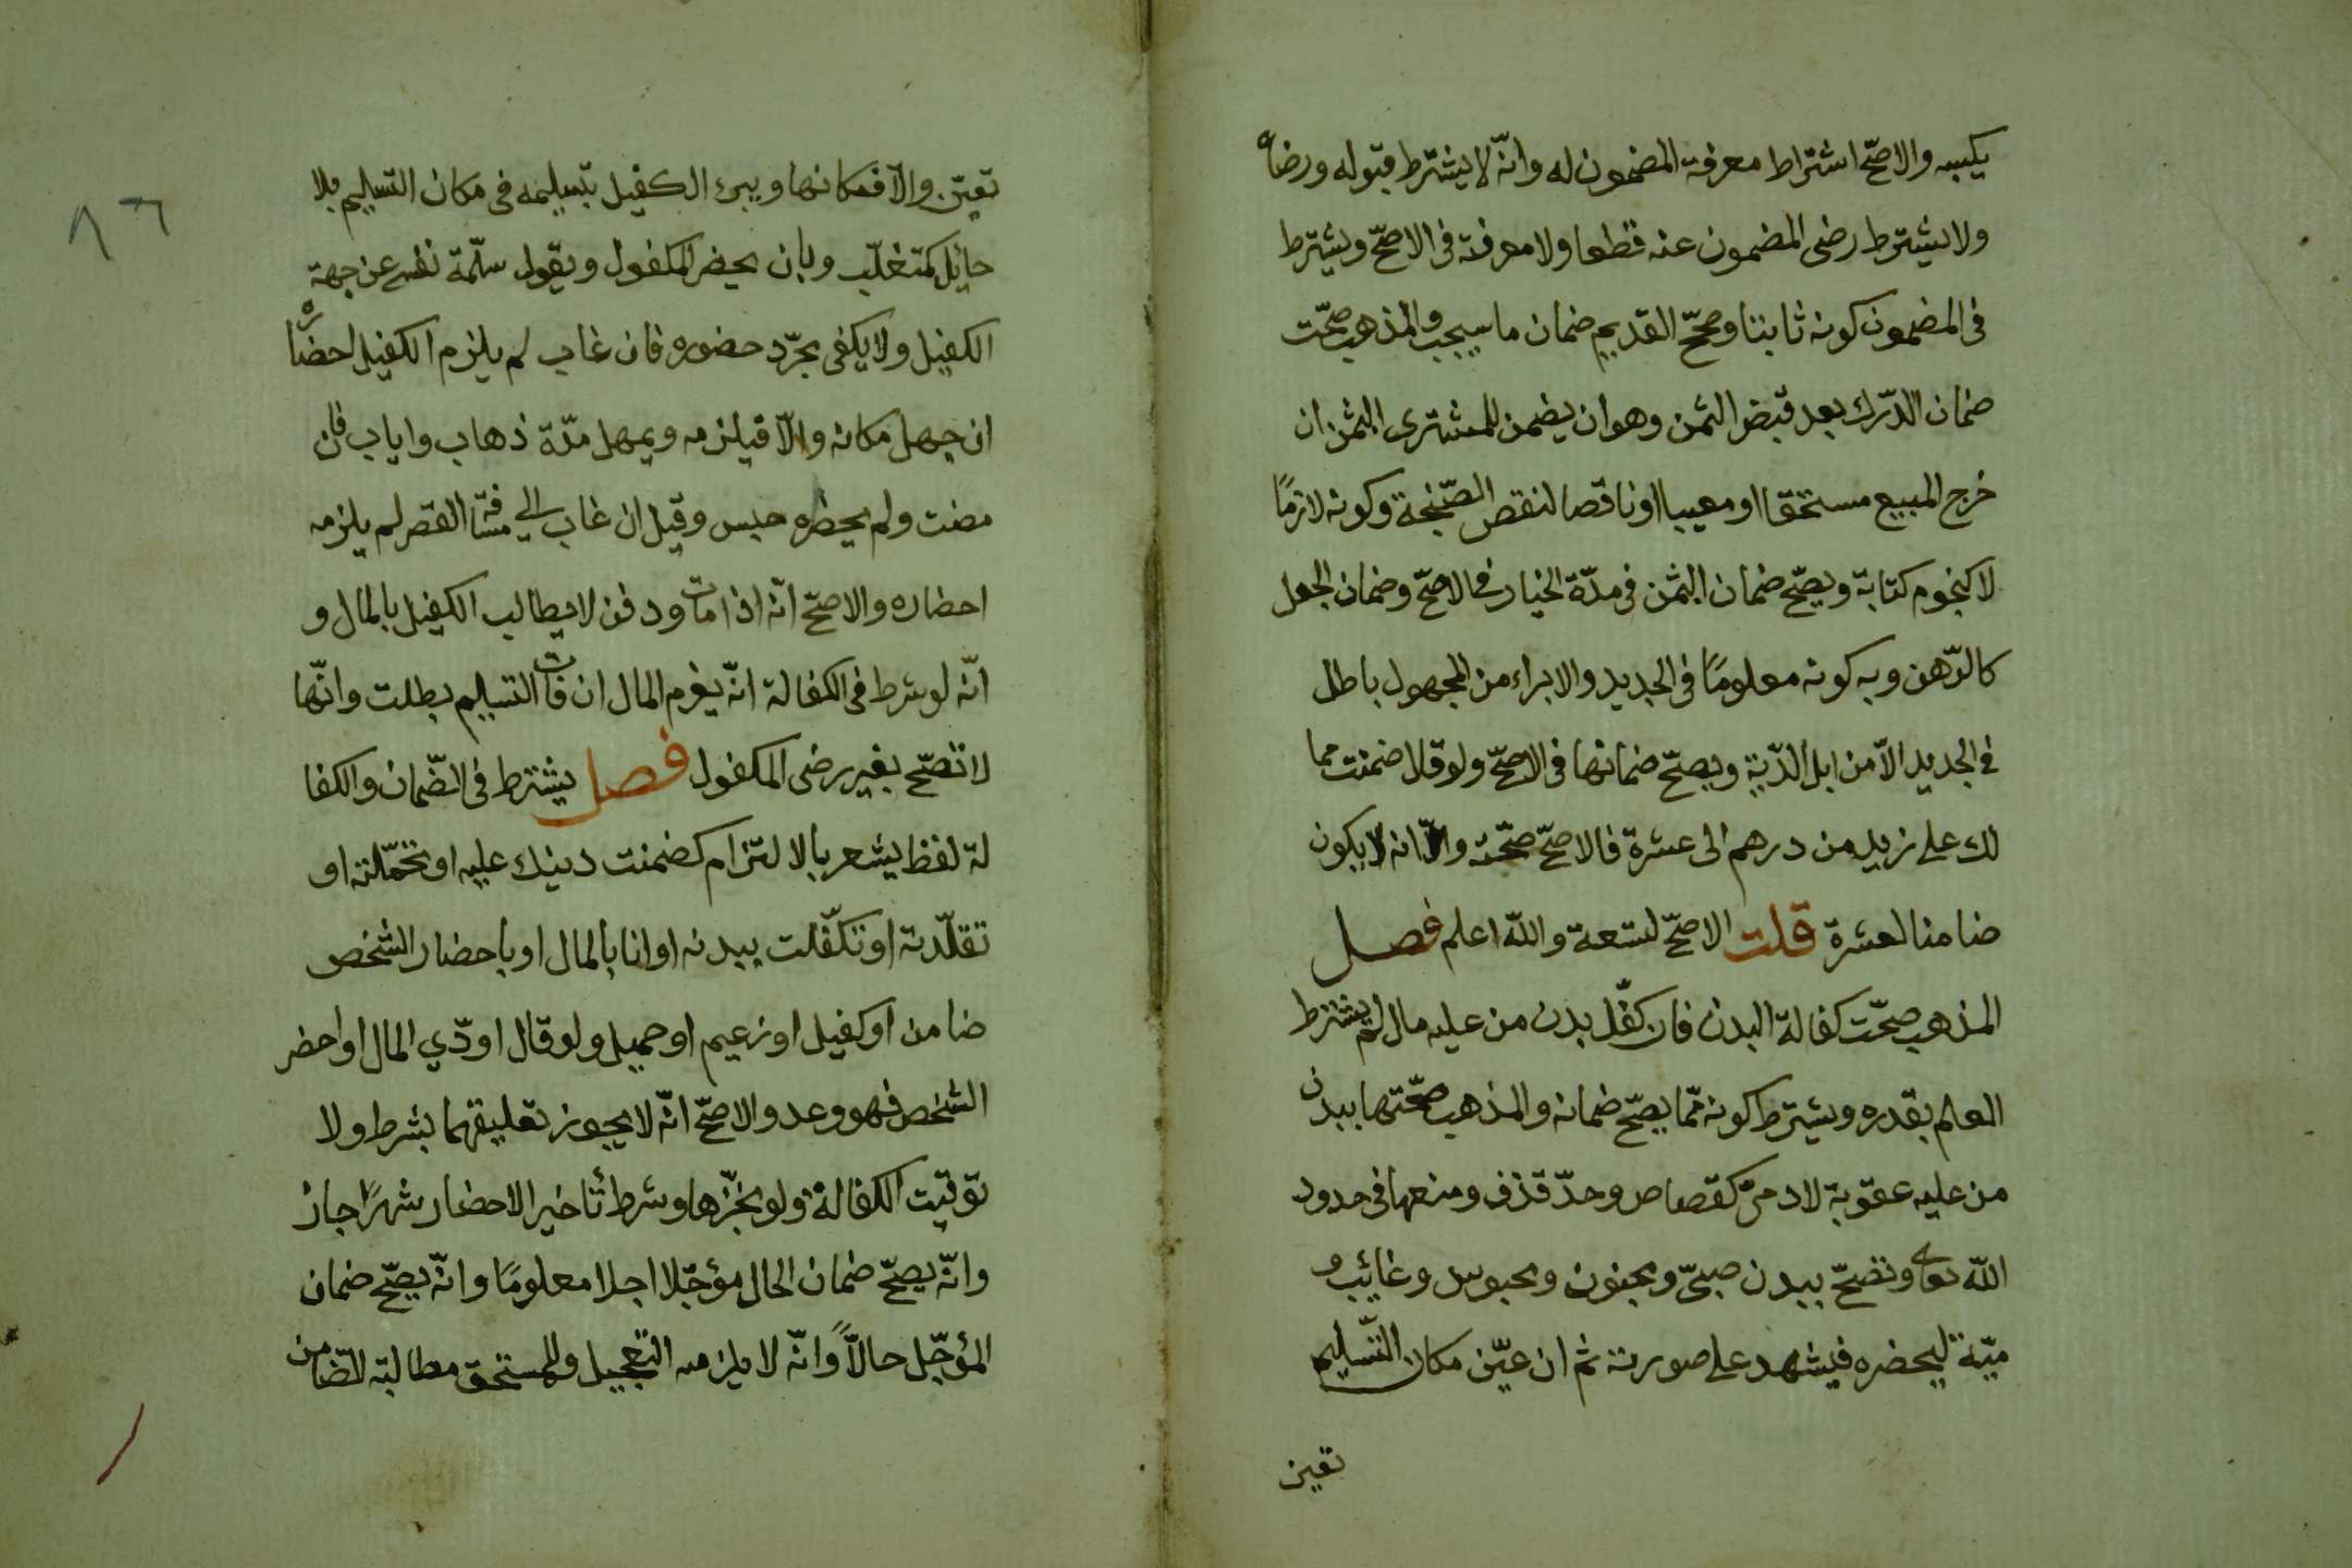 يكسبه والاصحّ اشتراط معرفة المضمون له وانّه لا يشترط قبوله ورضاه
ولا يشترط رضى المضمون عنه قطعا ولا معرفة فى الاصحّ ويشترط
فى المضمون كونه ثابتا وصحّح القديم ضمان ما سيجب والمذهب صحّت
ضمان الدّرك بعد قبض الثمن وهو ان يضمن للمشترى الثمن ان
خرج المبيع مستحقا او معيبا او ناقصا لنقص الصّنجة وكونه لازمًا
لا كنجوم كتابة ويصّح ضمان الثمن فى مدّة الخيار فى الاصحّ وضمان الجعل
كالرّهن وبه كونه معلومًا فى الجديد والابراء من المجهول باطل
فى الجديد الاّ من ابل الدّية ويصحّ ضمانها فى الاصحّ ولو قال ضمنت مما
لك على زيد من درهم الى عشرة فالاصحّ صحّته وانه لا يكون
ضامنا لعشرة قلت الاصحّ لتسعة والله اعلم فصل
المذهب صحّت كفالة البدن فان كفّل بدن من عليه مال لم يشترط
العلم بقدره ويشترط كونه ممّا يصحّ ضمانه والمذهب صحّتها ببدن
من عليه عقوبة لادمىّ كقصاص وحدّ قذف ومنعها فى حدود
الله تعالى وتصحّ ببدن صبىّ ومجنون ومحبوس وغائب و
ميّة ليحضره فيشهد على صورته ثم ان عيّن مكان التّسليم
تعين
٨٦
تعيّن والاّ فمكانها ويبرء الكفيل بتسليمه فى مكان التسليم بلا
حايل كمتغلّب وبان يحضر المكفول ويقول سلّمة نفسى عن جهة
الكفيل ولا يكفى مجرّد حضوره فان غاب لم يلزم الكفيل احضاره
ان جهل مكانه والاّ فيلزمه ويمهل مدّة ذهاب واياب فان
مضت ولم يحضره حبس وقيل ان غاب الى مسافة القصر لم يلزمه
احضاره والاصحّ انّه اذا مات ودفن لا يطالب الكفيل بالمال و
انّه لو شرط فى الكفالة انّه يغرم المال ان فات التسليم بطلت وانّها
لا تصّح بغير رضى المكفول فصل يشترط فى الضّمان والكفا
لة لفظ يشعر بالالتزام كضمنت دينك عليه او تحمّلته او
تقلّدته او تكفّلت ببدنه او انا بالمال او باحضار الشخص
ضامن او كفيل او زعيم او حميل ولو قال اودّي المال او احضر
الشخص فهو وعد والاصحّ انّه لا يجوز تعليقهما بشرط ولا
توقيت الكفالة ولو نجّزها وشرط تأخير الاحضار شهرًا جاز
وانّه يصحّ ضمان الحال مؤجّلا اجلا معلومًا وانّه يصحّ ضمان
المؤجّل حالاًّ وانّه لا يلزمه التعجيل وللمستحق مطالبة الضّامن